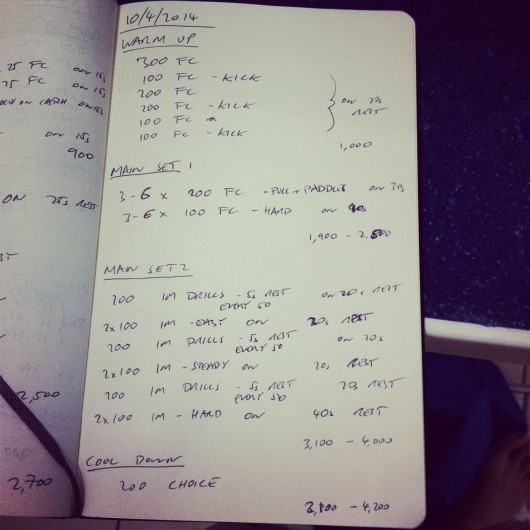 25 FC on 15s
25 FC on 15s
on catch on 15s
on 15s
900
ON 25s REST
2,500
2,700
10/4/2014
WARM UP
300 FC
100 FC - KICK
200 FC
200 FC - KICK
100 FC
100 FC - KICK
on 20s REST
1,000
MAIN SET 1
3-6 x 200 FC - PULL + PADDLES on 30s
3-6 x 100 FC - HARD on
1,900 - 2,800
MAIN SET 2
200 IM DRILLS - 5s REST EVERY 50 on 20s REST
2x100 IM - EASY on 20s REST
200 IM DRILLS - 5s REST EVERY 50 on 20s
2x100 IM - STEADY on 20s REST
200 IM DRILLS - 5s REST EVERY 50 20s REST
2x100 IM - HARD on 40s REST
3,100 - 4,000
COOL DOWN
200 CHOICE
3,300 - 4,200